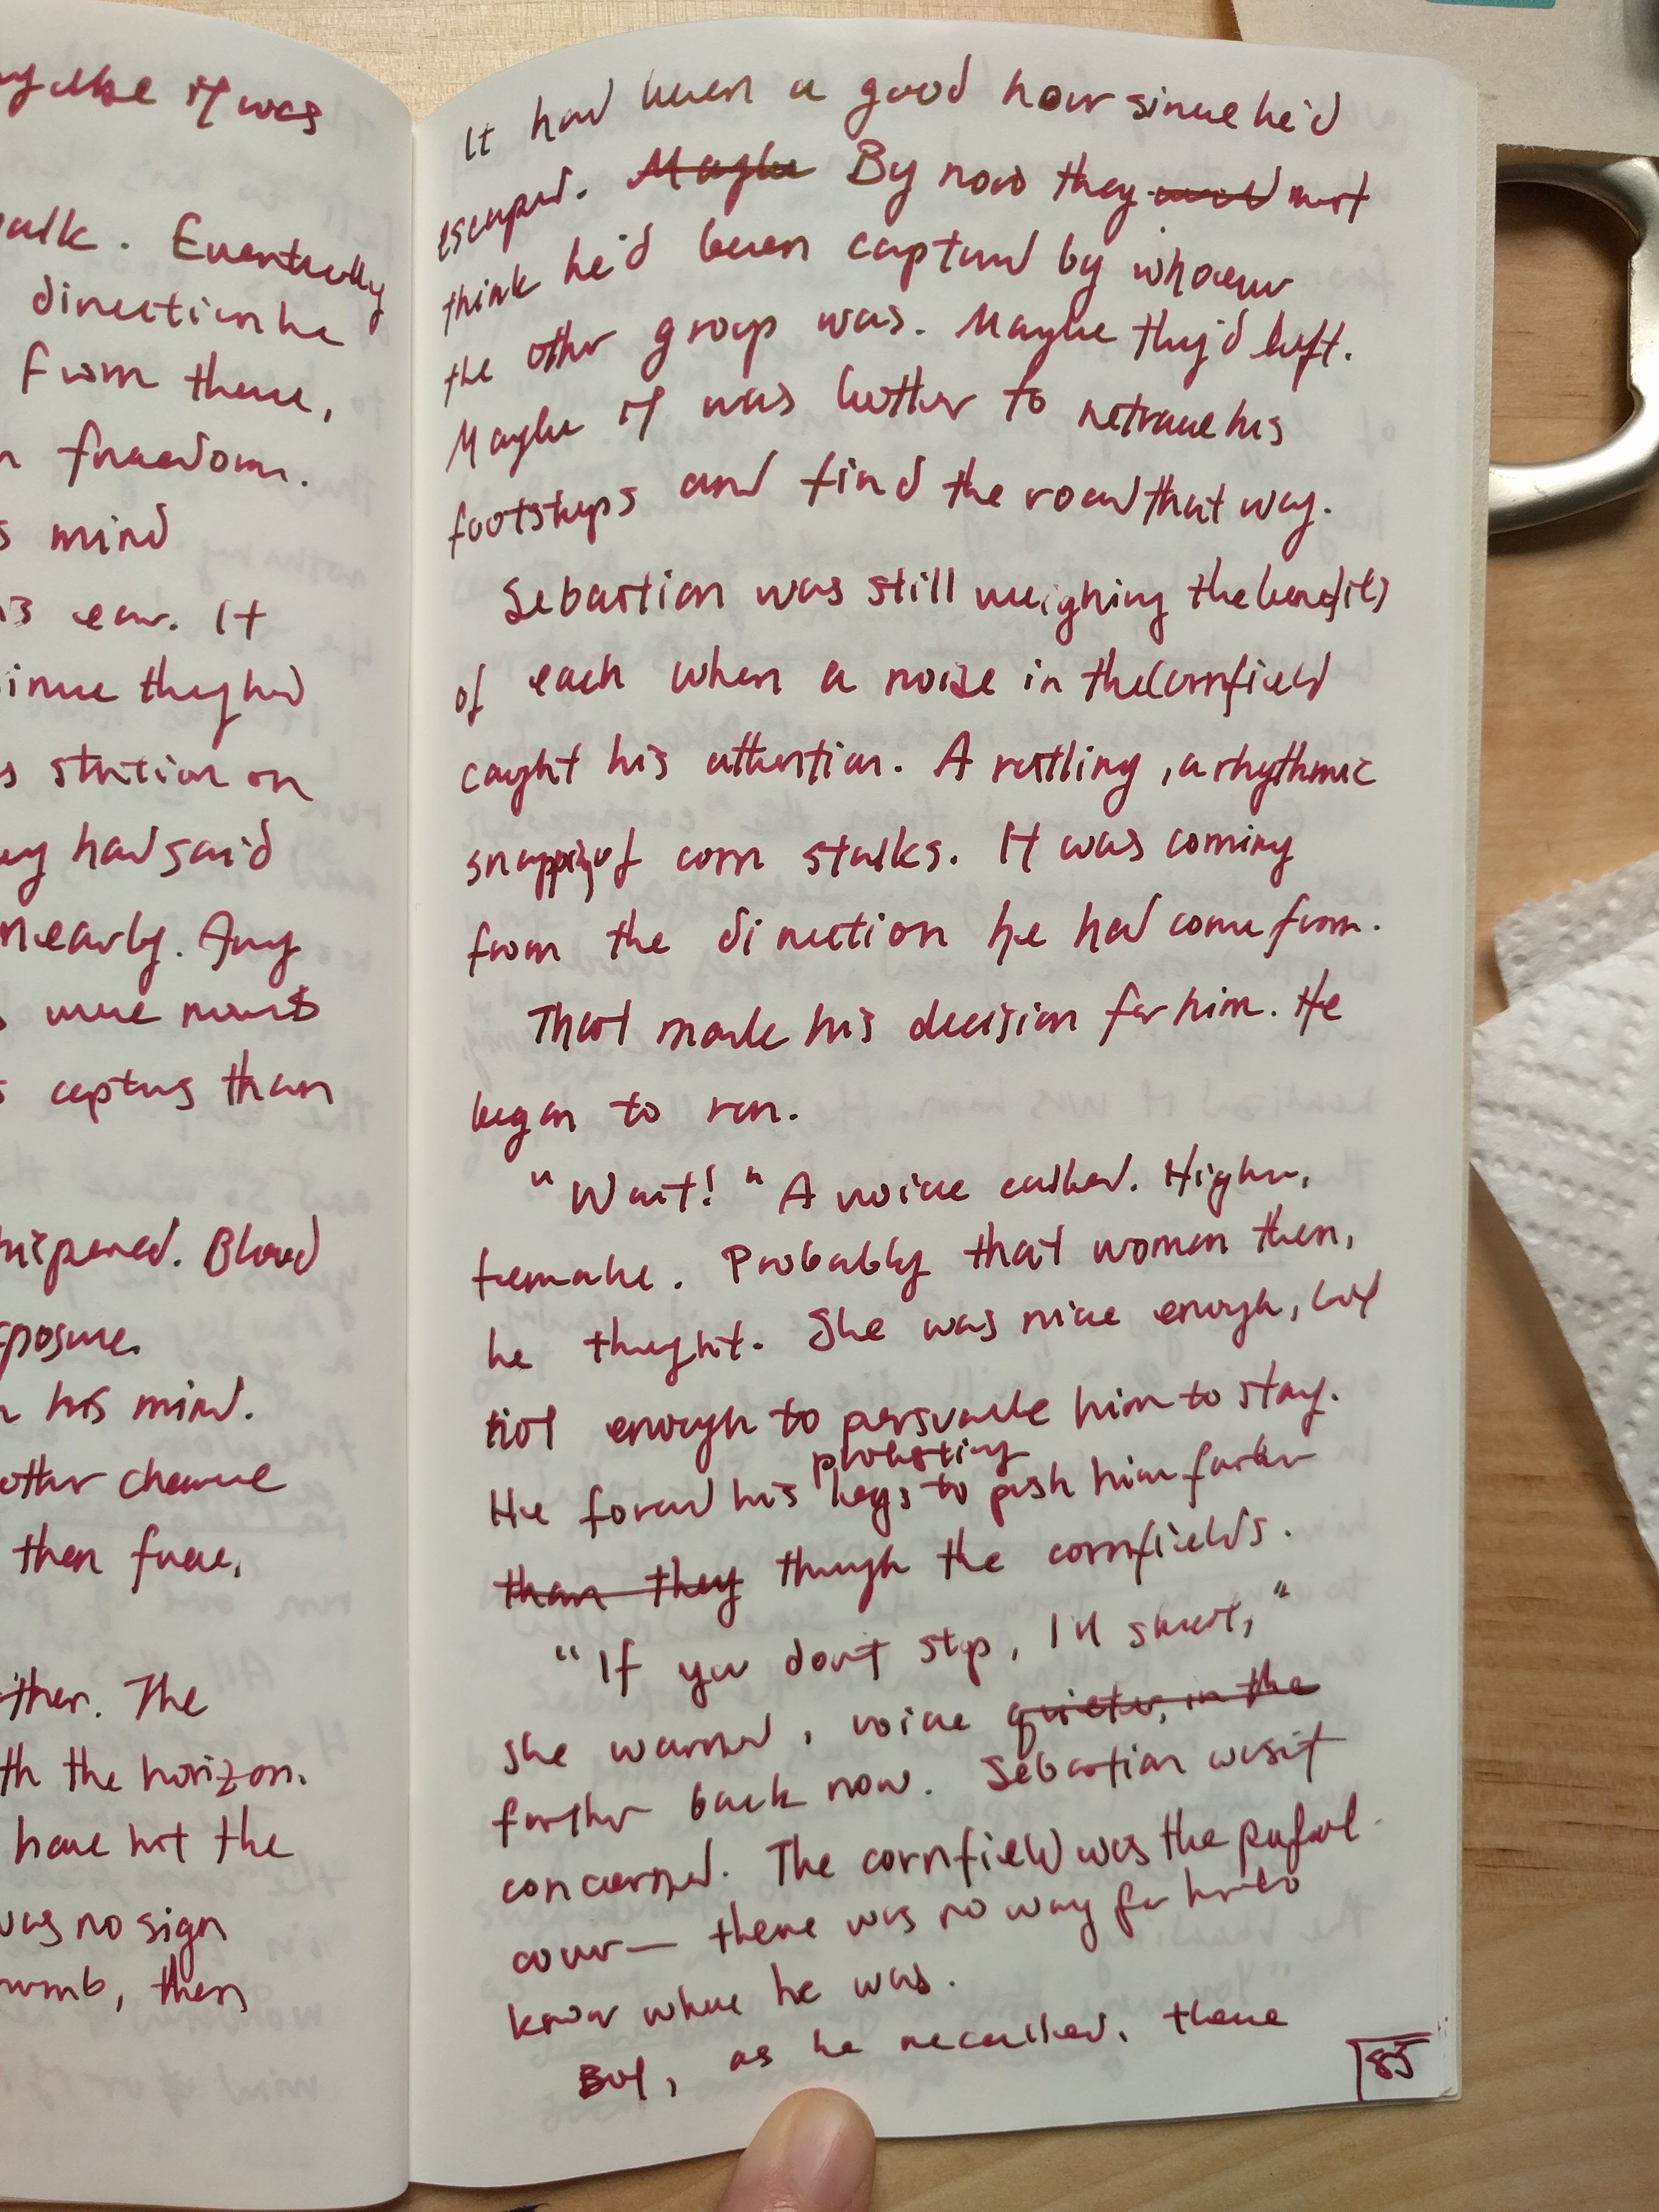 else it was
walk. Eventually
direction he
from there,
freedom.
s mind
his ear. It
since they had
s station on
they had said
nearby. Any
were
s captors than
whispered. Blood
exposure.
his mind.
other chance
then free,
The
th the horizon.
have hit the
was no sign
then
It had been a good hour since he'd
escaped. Maybe By now they must
think he'd been captured by whoever
the other group was. Maybe they'd left.
Maybe it was better to retrace his
footsteps and find the road that way.
Sebastian was still weighing the benefits
of each when a noise in the cornfield
caught his attention. A rustling, a rhythmic
snapping of corn stalks. It was coming
from the direction he had come from.
That made his decision for him. He
began to run.
"Wait!" A voice called. Higher,
female. Probably that woman then,
he thought. She was nice enough, but
not enough to persuade him to stay.
protesting
He forced his legs to push him farther
than they through the cornfields.
"If you don't stop, I'll shoot,"
she warned, voice quieter, in the
further back now. Sebastian wasn't
concerned. The cornfield was the perfect
cover— there was no way for her to
know where he was.
But, as he recalled, there
85